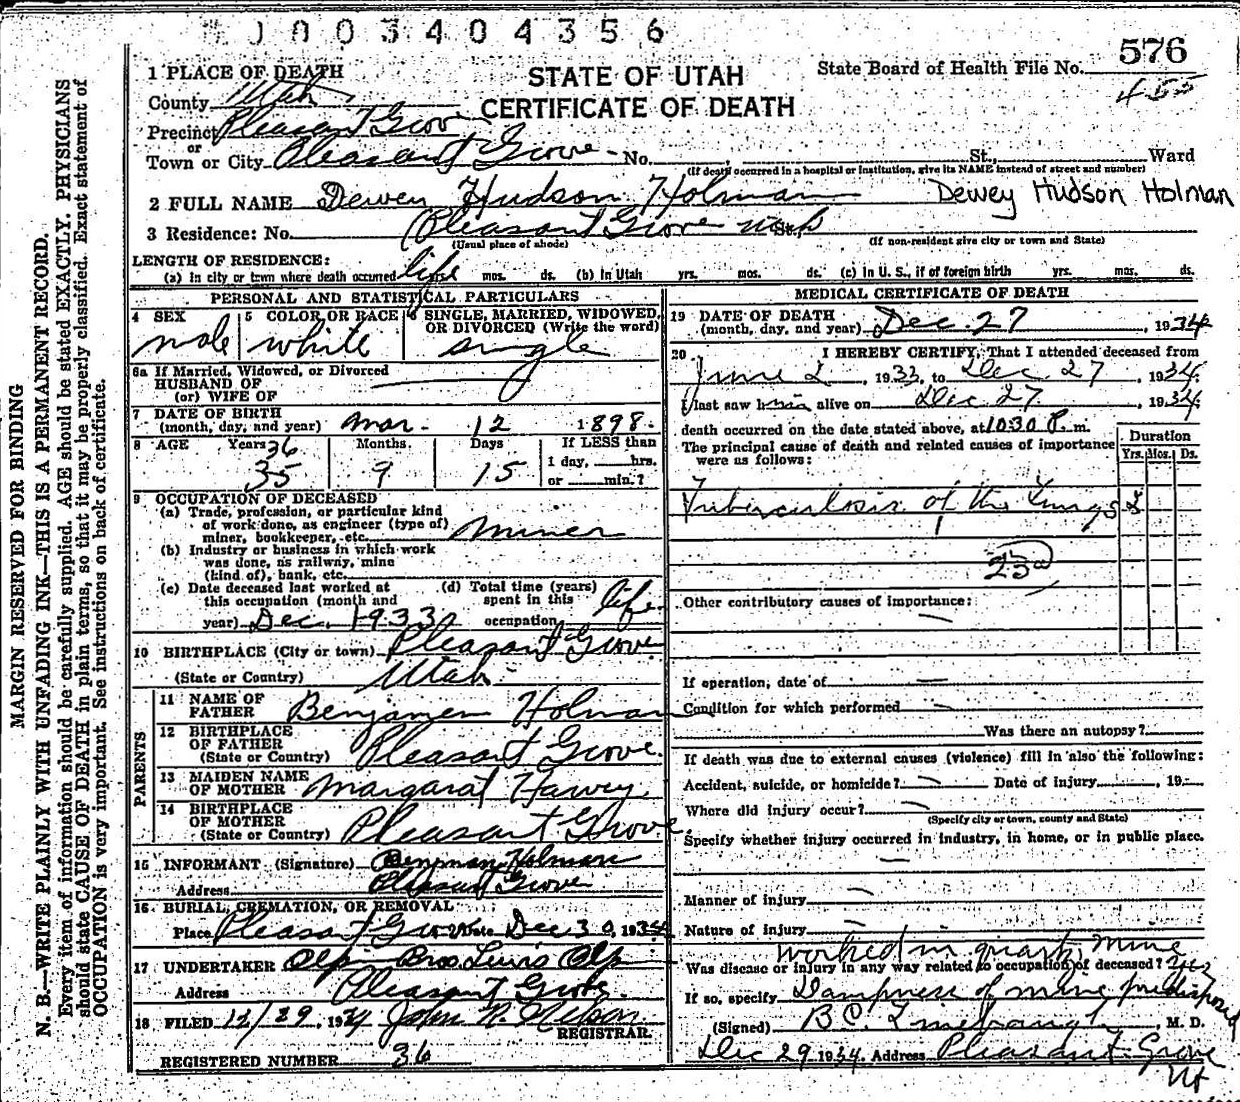 J 0 0 3 4 0 4 3 5 6
STATE OF UTAH
CERTIFICATE OF DEATH
State Board of Health File No. 576
455
MARGIN RESERVED FOR BINDING
N. B.—WRITE PLAINLY WITH UNFADING INK—THIS IS A PERMANENT RECORD.
Every item of information should be carefully supplied. AGE should be stated EXACTLY. PHYSICIANS
should state CAUSE OF DEATH in plain terms, so that it may be properly classified. Exact statement of
OCCUPATION is very important. See instructions on back of certificate.
1 PLACE OF DEATH
County Utah
Precinct Pleasant Grove
or
Town or City Pleasant Grove No. , St., Ward
(If death occurred in a hospital or institution, give its NAME instead of street and number)
2 FULL NAME Dewey Hudson Holman Dewey Hudson Holman
3 Residence: No. Pleasant Grove Utah St.,
(Usual place of abode) (If non-resident give city or town and State)
LENGTH OF RESIDENCE:
(a) In city or town where death occurred life yrs. mos. ds. (b) In Utah yrs. mos. ds. (c) In U. S., if of foreign birth yrs. mos. ds.
PERSONAL AND STATISTICAL PARTICULARS
4 SEX 5 COLOR OR RACE 6 SINGLE, MARRIED, WIDOWED,
OR DIVORCED (Write the word)
male white single
6a If Married, Widowed, or Divorced
HUSBAND OF
(or) WIFE OF
7 DATE OF BIRTH
(month, day, and year) Mar. 12 1898.
8 AGE Years Months. Days If LESS than
36
35 9 15 1 day, hrs.
or min.?
9 OCCUPATION OF DECEASED
(a) Trade, profession, or particular kind
of work done, as engineer (type of)
miner, bookkeeper, etc. Miner
(b) Industry or business in which work
was done, as railway, mine
(kind of), bank, etc.
(c) Date deceased last worked at (d) Total time (years)
this occupation (month and spent in this
year) Dec. 1933 occupation life
10 BIRTHPLACE (City or town) Pleasant Grove
(State or Country) Utah
PARENTS
11 NAME OF
FATHER Benjamen Holman
12 BIRTHPLACE
OF FATHER
(State or Country) Pleasant Grove.
13 MAIDEN NAME
OF MOTHER Margarat Harvey.
14 BIRTHPLACE
OF MOTHER
(State or Country) Pleasant Grove
15 INFORMANT (Signature) Benjman Holman
Address Pleasant Grove
16 BURIAL, CREMATION, OR REMOVAL
Place Pleasant Grove Date Dec 30, 1934
17 UNDERTAKER Olpin Bros. Lewis Olpin
Address Pleasant Grove.
18 FILED 12/29, 1934 John N. Nelson.
REGISTRAR.
REGISTERED NUMBER 36
MEDICAL CERTIFICATE OF DEATH
19 DATE OF DEATH
(month, day, and year) Dec. 27, 1934
20 I HEREBY CERTIFY, That I attended deceased from
June 2, 1933, to Dec 27, 1934.
I last saw him alive on Dec 27, 1934
death occurred on the date stated above, at 10:30 P. m.
The principal cause of death and related causes of importance
were as follows:
Duration
Yrs. Mos. Ds.
Tuberculosis of the Lungs 2
23a
Other contributory causes of importance:
If operation, date of
Condition for which performed
Was there an autopsy?
If death was due to external causes (violence) fill in also the following:
Accident, suicide, or homicide? Date of injury , 19
Where did injury occur?
(Specify city or town, county and State)
Specify whether injury occurred in industry, in home, or in public place.
Manner of injury
Nature of injury
worked in quartz mine
Was disease or injury in any way related to occupation of deceased? yes
If so, specify Dampness of mine predisposed
(Signed) B C , M. D.
Dec 29 1934. Address Pleasant Grove
Ut